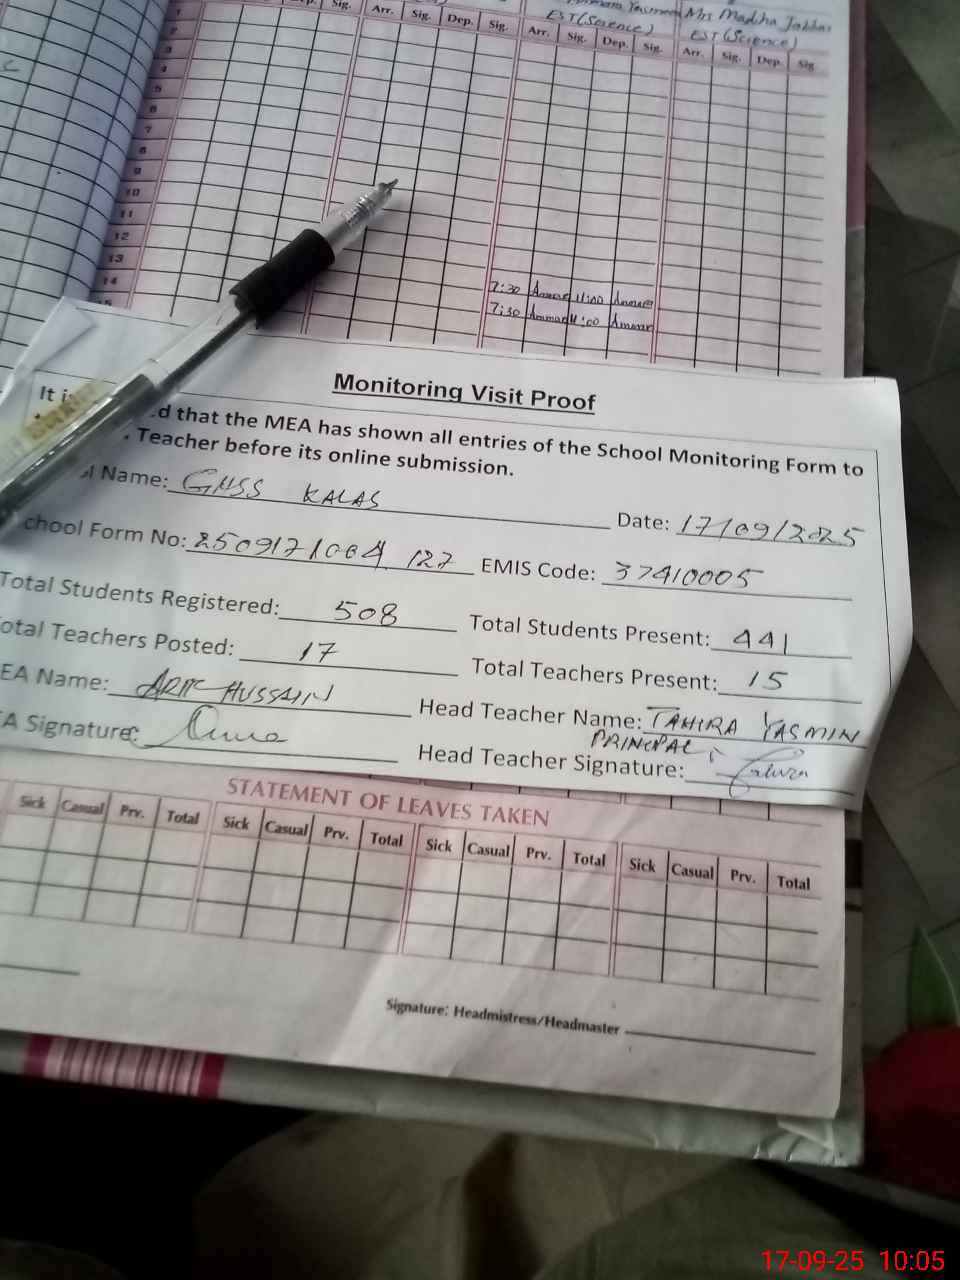 Yasmeen Mrs Madiha Jabbar
EST (Science) EST (Science)
Sig. Arr. Sig. Dep. Sig. Arr. Sig. Dep. Sig. Arr. Sig. Dep. Sig
2
3
4
5
6
7
8
9
10
11
12
13
14
7:30 11:00
7:30 11:00
Monitoring Visit Proof
It is d that the MEA has shown all entries of the School Monitoring Form to
Teacher before its online submission.
Name: GHSS KALAS Date: 17/09/2025
chool Form No: EMIS Code: 37410005
Total Students Registered: 508 Total Students Present: 441
otal Teachers Posted: 17 Total Teachers Present: 15
EA Name: HUSSAIN Head Teacher Name: TAHIRA YASMIN
PRINCIPAL
EA Signature: Head Teacher Signature:
STATEMENT OF LEAVES TAKEN
Sick Casual Prv. Total Sick Casual Prv. Total Sick Casual Prv. Total Sick Casual Prv. Total
Signature: Headmistress/Headmaster
17-09-25 10:05